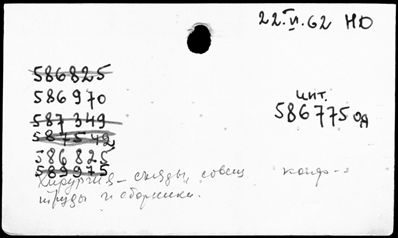 22.VI.62 НО
586825
586970
587349
587542
586825
589975
цит.
586775 од
Хирургия - съезды, совещ
труды и сборники.